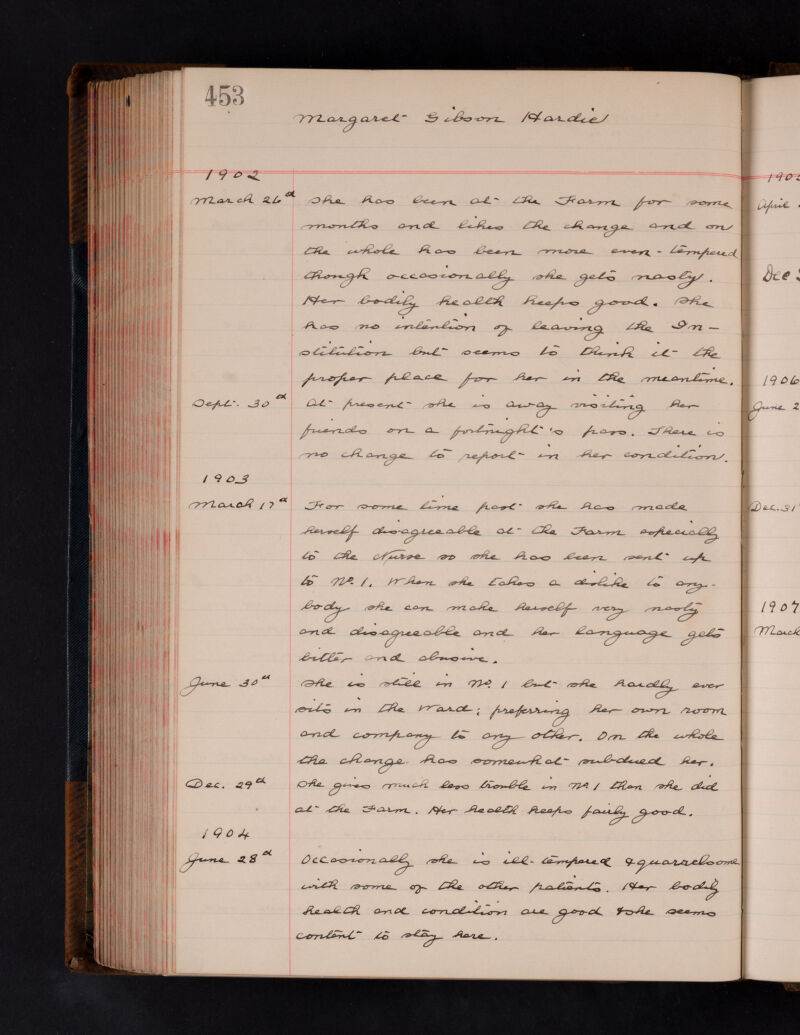 453
Margaret Gibson Hardie
1902
March 26th She has been at the Farm for some
months and likes the change and on
the whole has been more even-tempered
though occasionally she gets nasty.
Her bodily health keeps good. She
has no intention of leaving the In-
stitution but seems to think it the
proper place for her in the meantime.
Sept. 30th At present she is away visiting her
friends on a fortnight's pass. There is
no change to report in her condition.
1903
March 17th For some time past she has made
herself disagreeable at the Farm especially
to the Nurse so she has been sent up
to No. 1. When she takes a dislike to any-
body she can make herself very nasty
and disagreeable and her language gets
bitter and abusive.
June 30th She is still in No. 1 but she hardly ever
sits in the Ward; preferring her own room
and company to any other. On the whole
the change has somewhat subdued her.
Dec. 29th She gives much less trouble in No. 1 than she did
at the Farm. Her health keeps fairly good.
1904
June 28th Occasionally she is ill-tempered & quarrelsome
with some of the other patients. Her bodily
health and condition are good & she seems
content to stay here.
April
Dec
1906
June 2
Dec. 31
1907
March